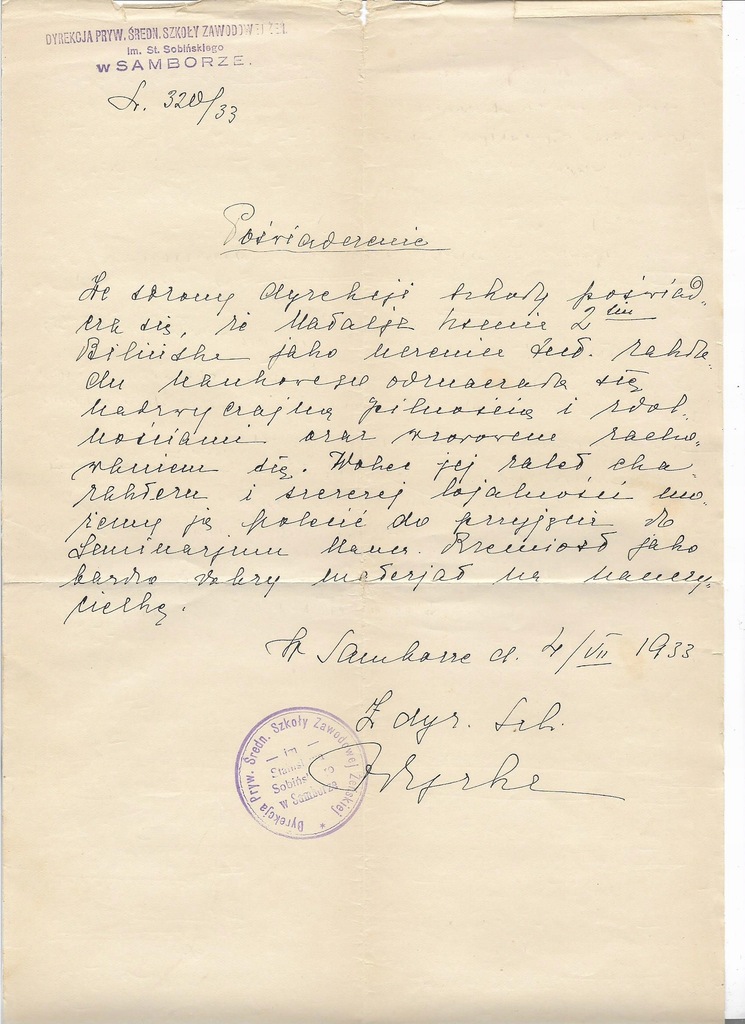 DYREKCJA PRYW. ŚREDN. SZKOŁY ZAWODOWEJ ŻEŃ.
im. St. Sobińskiego
w SAMBORZE.
L. 320/33
Poświadczenie
Ze strony dyrekcji szkoły poświad-
cza się, że Natalja Ksenia 2im
Bilińska jako uczenica tut. zakła-
du naukowego odznaczała się
nadzwyczajną pilnością i zdol-
nościami oraz wzorowem zacho-
waniem się. Wobec jej zalet cha-
rakteru i szczerej lojalności mo-
żemy ją polecić do przyjęcia do
Seminarjum Naucz. Rzemiosł jako
bardzo dobry materjał na nauczy-
cielkę.
W Samborze d. 4/VII 1933
Z dyr. szk.
Dyrekcja Pryw. Średn. Szkoły Zawodowej Żeńskiej *
— im —
Sobińskiego
w Samborze